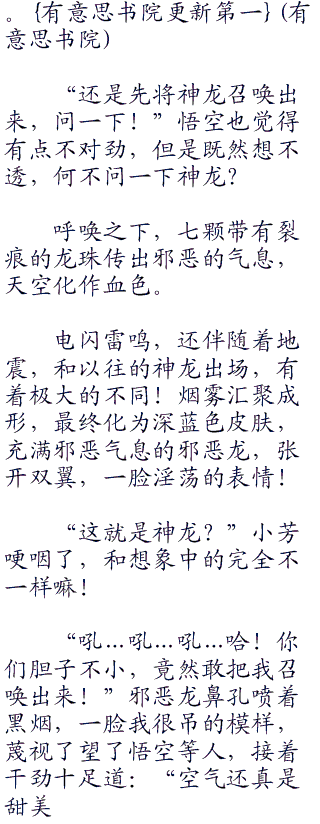 。{有意思书院更新第一} (有
意思书院)
“还是先将神龙召唤出
来，问一下！”悟空也觉得
有点不对劲，但是既然想不
透，何不问一下神龙？
呼唤之下，七颗带有裂
痕的龙珠传出邪恶的气息，
天空化作血色。
电闪雷鸣，还伴随着地
震，和以往的神龙出场，有
着极大的不同！烟雾汇聚成
形，最终化为深蓝色皮肤，
充满邪恶气息的邪恶龙，张
开双翼，一脸淫荡的表情！
“这就是神龙？”小芳
哽咽了，和想象中的完全不
一样嘛！
“吼…吼…吼…哈！你
们胆子不小，竟然敢把我召
唤出来！”邪恶龙鼻孔喷着
黑烟，一脸我很吊的模样，
蔑视了望了悟空等人，接着
干劲十足道：“空气还真是
甜美